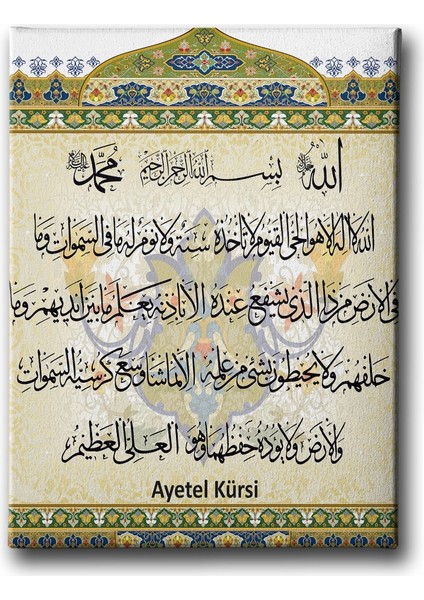 الله جل جلاله بسم الله الرحمن الرحيم محمد عليه السلام
الله لا اله الا هو الحي القيوم لا تأخذه سنة ولا نوم له ما في السموات وما
في الارض من ذا الذي يشفع عنده الا باذنه يعلم ما بين ايديهم وما
خلفهم ولا يحيطون بشئ من علمه الا بما شاء وسع كرسيه السموات
والارض ولا يؤده حفظهما وهو العلي العظيم
Ayetel Kürsi